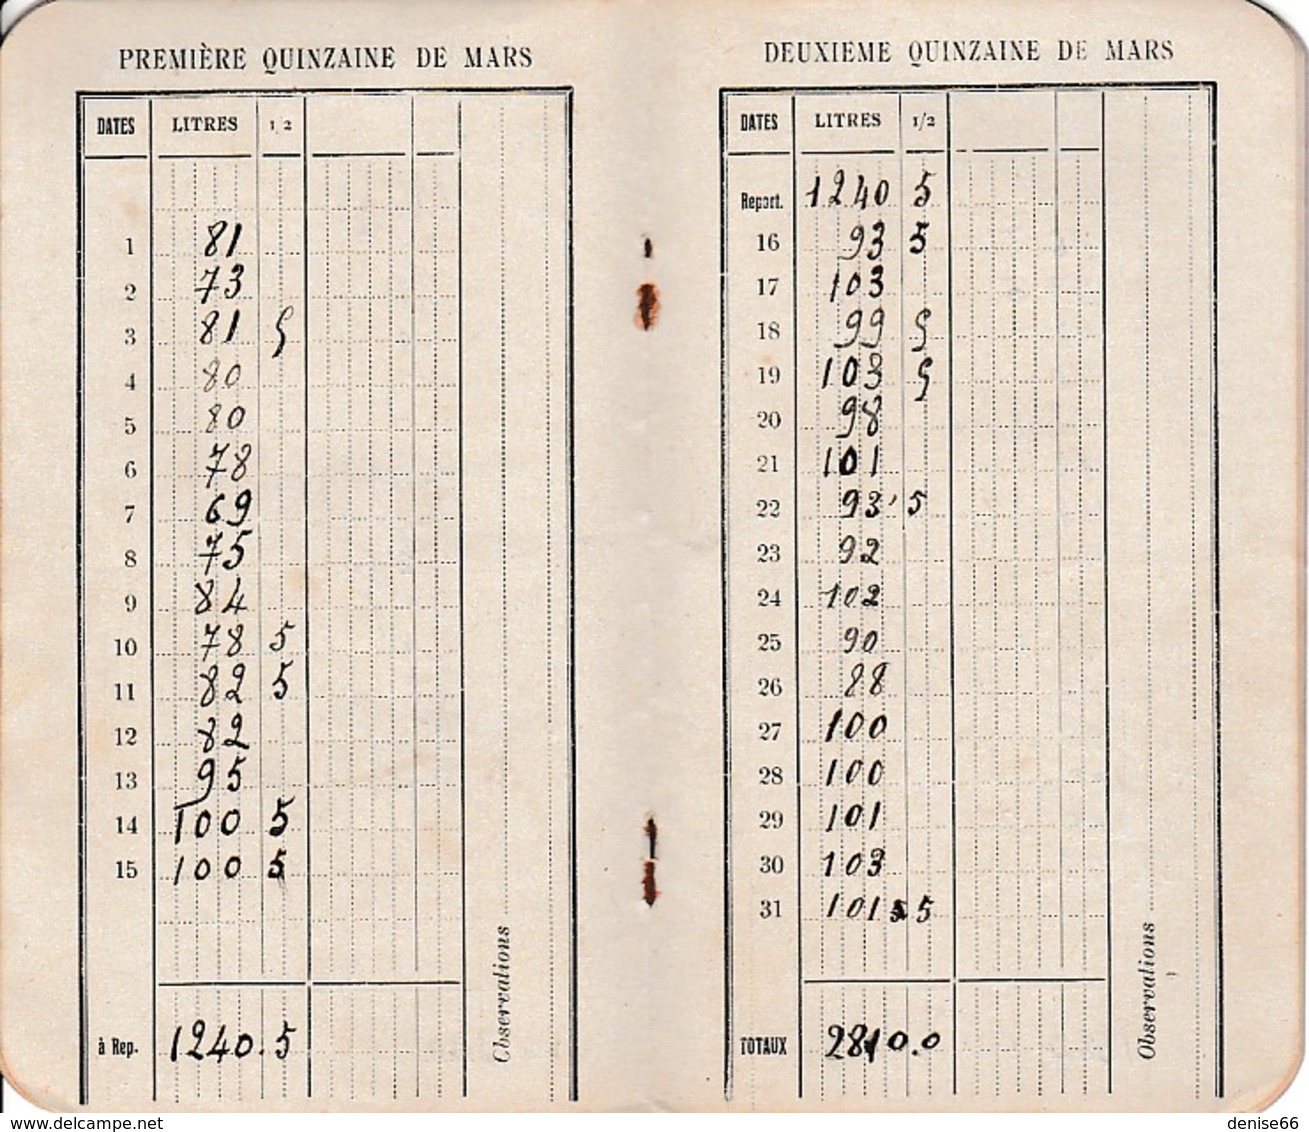 PREMIÈRE QUINZAINE DE MARS
DATES LITRES 1/2
1 81
2 73
3 81 5
4 80
5 80
6 78
7 69
8 75
9 84
10 78 5
11 82 5
12 82
13 95
14 100 5
15 100 5
à Rep. 1240.5
Observations
DEUXIEME QUINZAINE DE MARS
DATES LITRES 1/2
Report. 1240 5
16 93 5
17 103
18 99 5
19 103 5
20 98
21 101
22 93,5
23 92
24 102
25 90
26 88
27 100
28 100
29 101
30 103
31 101 5
TOTAUX 2810.0
Observations
www.delcampe.net
denise66